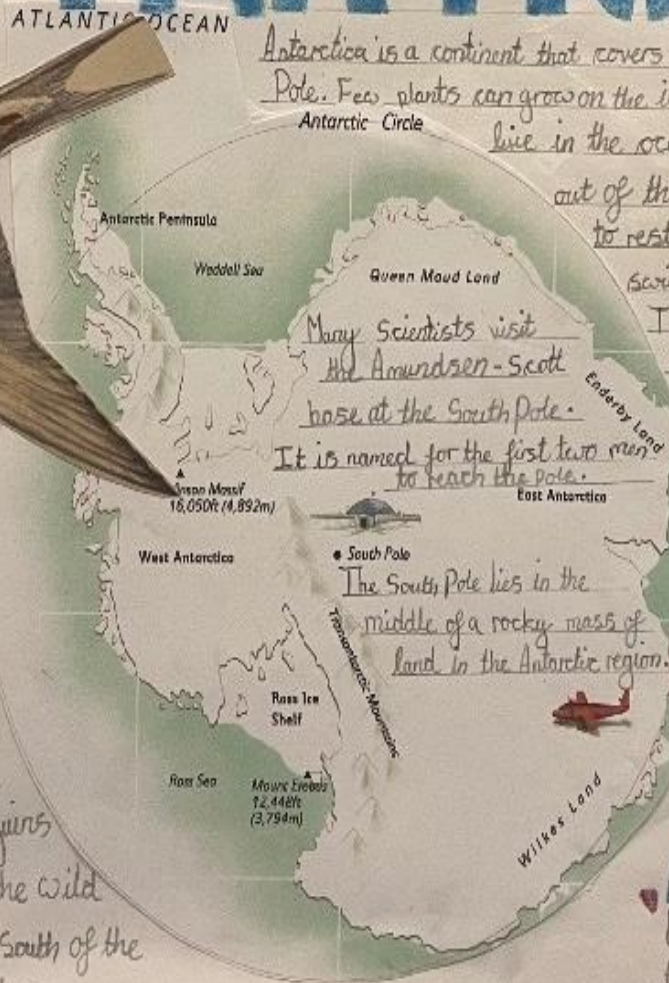 ATLANTIC OCEAN
Antarctica is a continent that covers
Pole. Few plants can grow on the
Antarctic Circle
live in the
out of
to rest
Antarctic Peninsula
Weddell Sea
Queen Maud Land
I
Many Scientists visit
the Amundsen-Scott
base at the South Pole.
Enderby Land
It is named for the first two men
to reach the pole.
Massif
16,050ft (4,892m)
East Antarctica
West Antarctica
South Pole
The South Pole lies in the
middle of a rocky mass of
land in the Antarctic region.
Transantarctic Mountains
Ross Ice
Shelf
Ross Sea
Mount Erebus
12,448ft
(3,794m)
Wilkes Land
wild
South of the